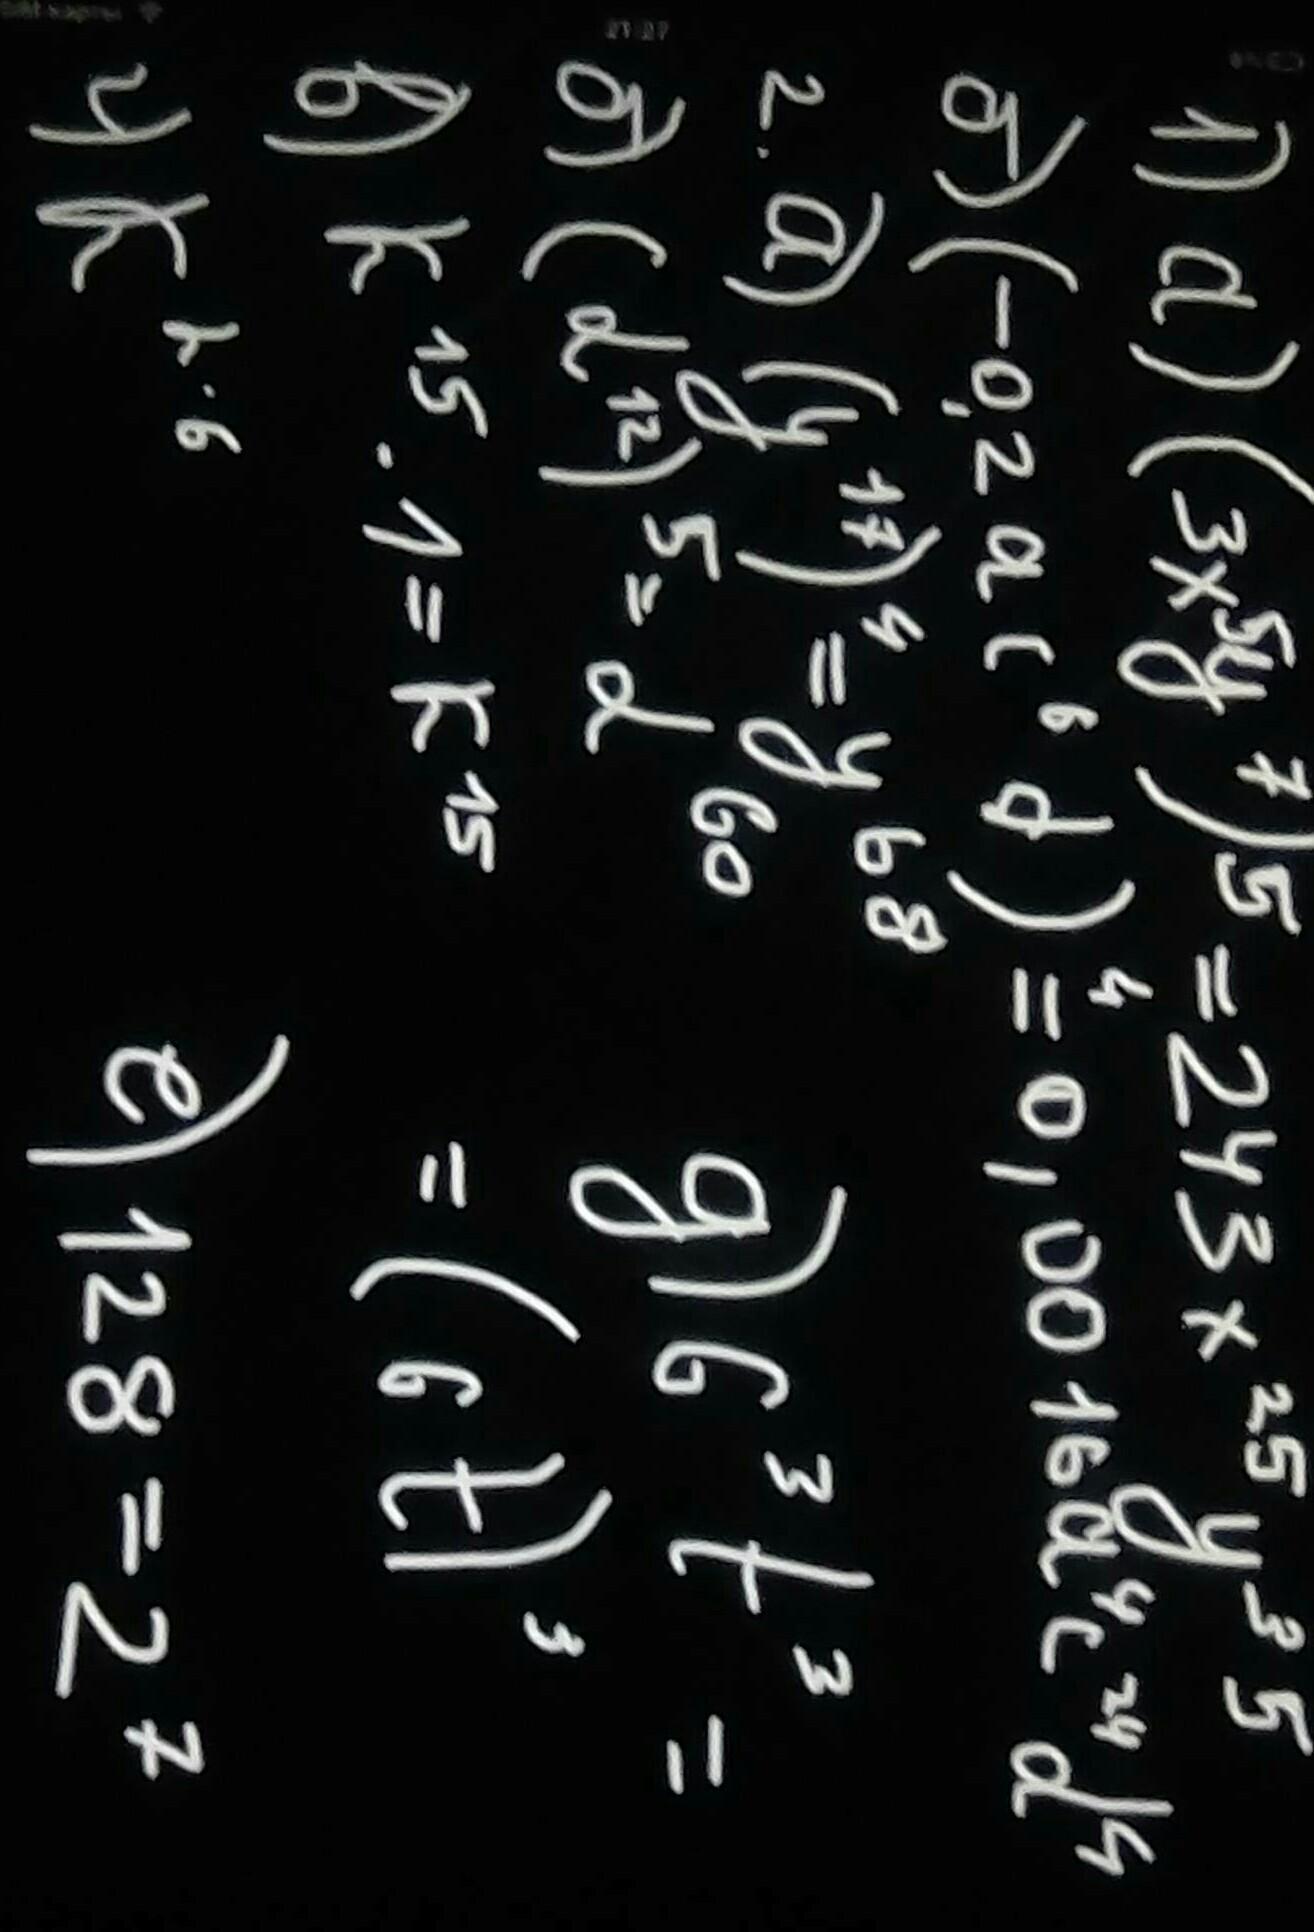 21:27
1) а) (3x⁵y⁷)⁵ = 243x²⁵y³⁵
б) (-0,2ac⁶d)⁴ = 0,0016a⁴c²⁴d⁴
2. а) (y¹⁷)⁴ = y⁶⁸
б) (d¹²)⁵ = d⁶⁰
в) k¹⁵ · 1 = k¹⁵
г) k
д) 6³t³ =
= (6t)³
е) 128 = 2⁷